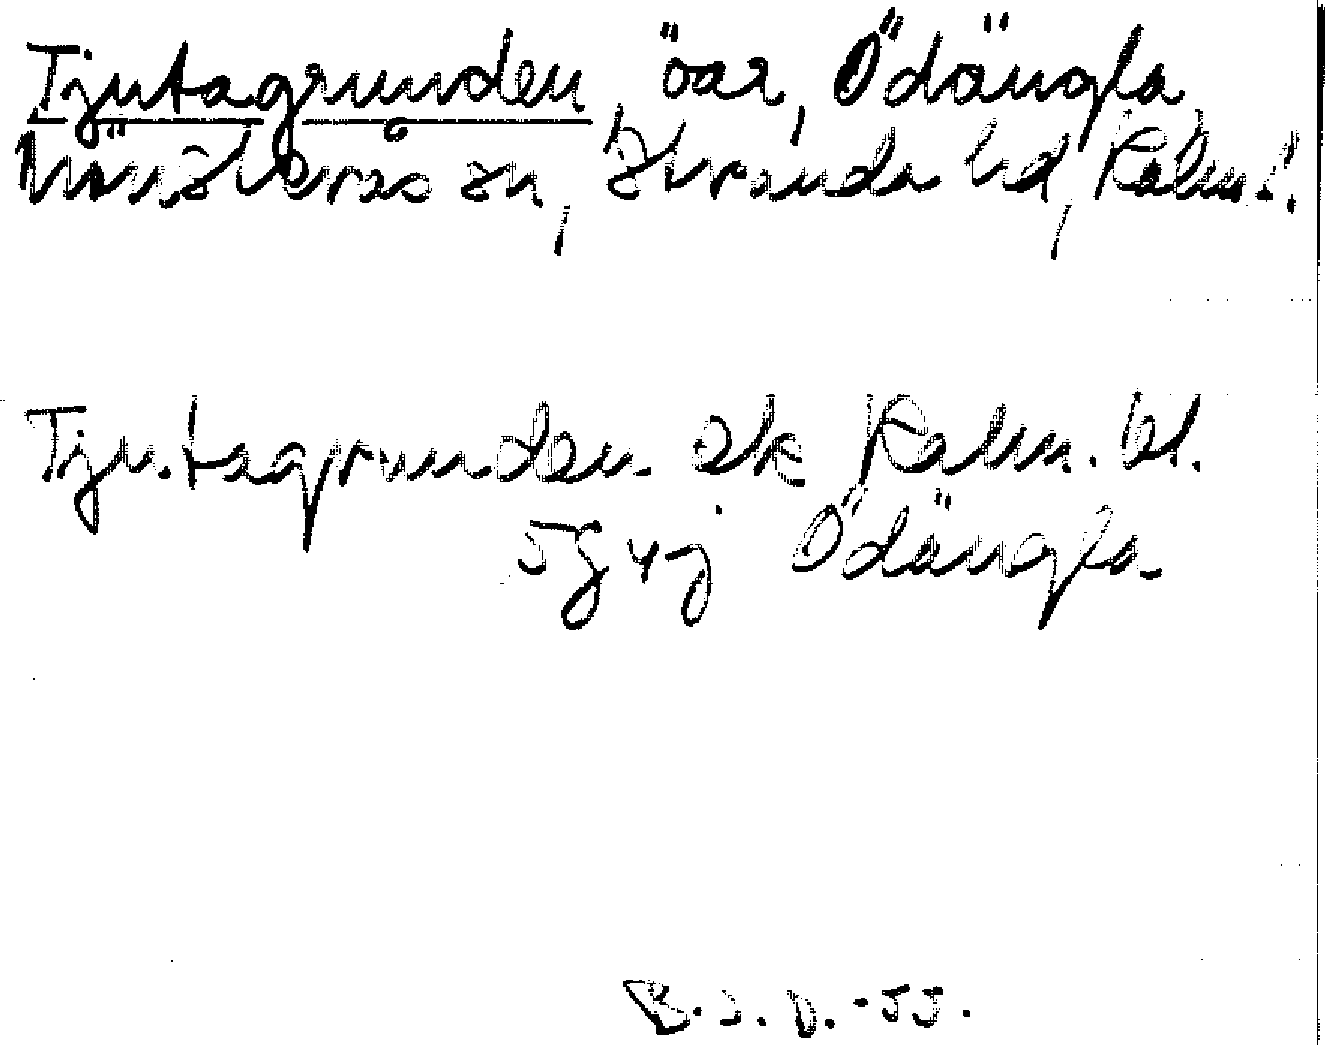 Tjutagrunden, öar, Ödängla
Mönsterås sn, Stranda hd, Kalm. l.
Tjutagrunden ek Kalm. bl.
5g 4j Ödängla
B.S.D.-55.